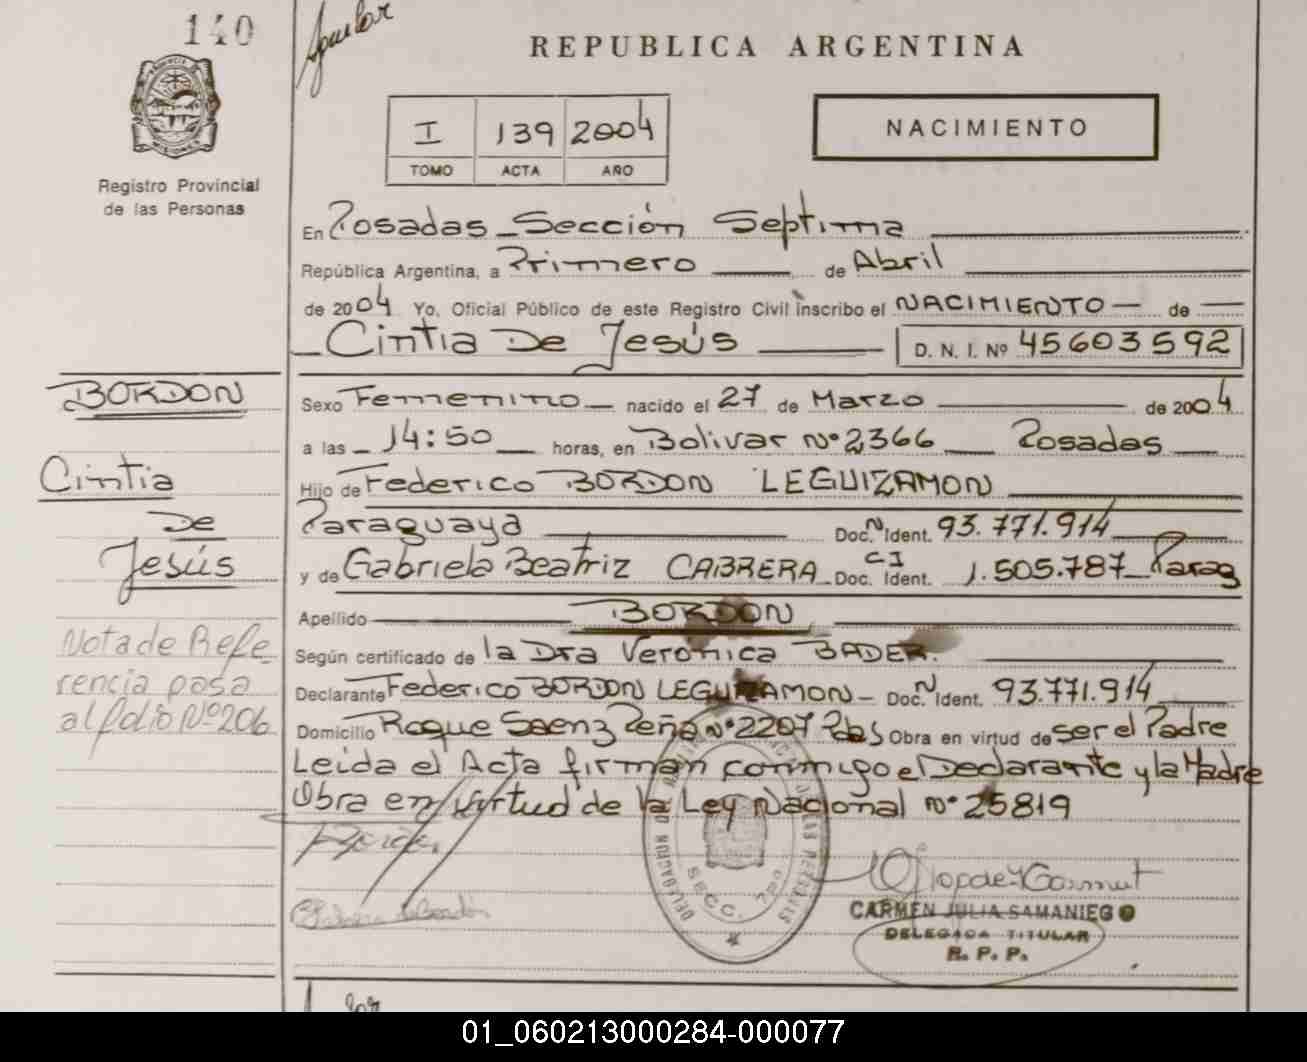 140
Aguilar
REPUBLICA ARGENTINA
MISIONES
Registro Provincial
de las Personas
I 139 2004
TOMO ACTA AÑO
NACIMIENTO
En Posadas - Sección Septima
República Argentina, a Primero de Abril
de 2004 Yo, Oficial Público de este Registro Civil inscribo el NACIMIENTO - de
Cintia De Jesús D. N. I. Nº 45603592
BORDON
Cintia
De
Jesús
Nota de Refe
rencia pasa
al folio Nº 206
Sexo Femenino nacido el 27 de Marzo de 2004
a las 14:50 horas, en Bolivar nº 2366 Posadas
Hijo de Federico BORDON LEGUIZAMON
Paraguaya Doc. N Ident. 93.771.914
y de Gabriela Beatriz CABRERA Doc. CI Ident. 1.505.787 Parag
Apellido BORDON
Según certificado de la Dra Veronica BADER.
Declarante Federico BORDON LEGUIZAMON - Doc. N Ident. 93.771.914
Domicilio Roque Saenz Peña nº 2207 Pdas Obra en virtud de ser el Padre
Leida el Acta firman conmigo el Declarante y la Madre
Obra en virtud de la Ley Nacional nº 25819
SECC. 7ª
CARMEN JULIA SAMANIEGO
DELEGADA TITULAR
R. P. P.
01_060213000284-000077